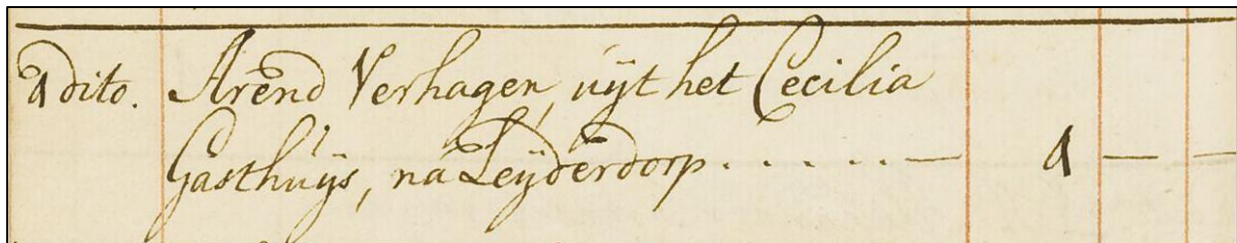 a dito. Arend Verhagen, uijt het Cecilia
Gasthuijs, na Leijderdorp. . . . . . — a — —